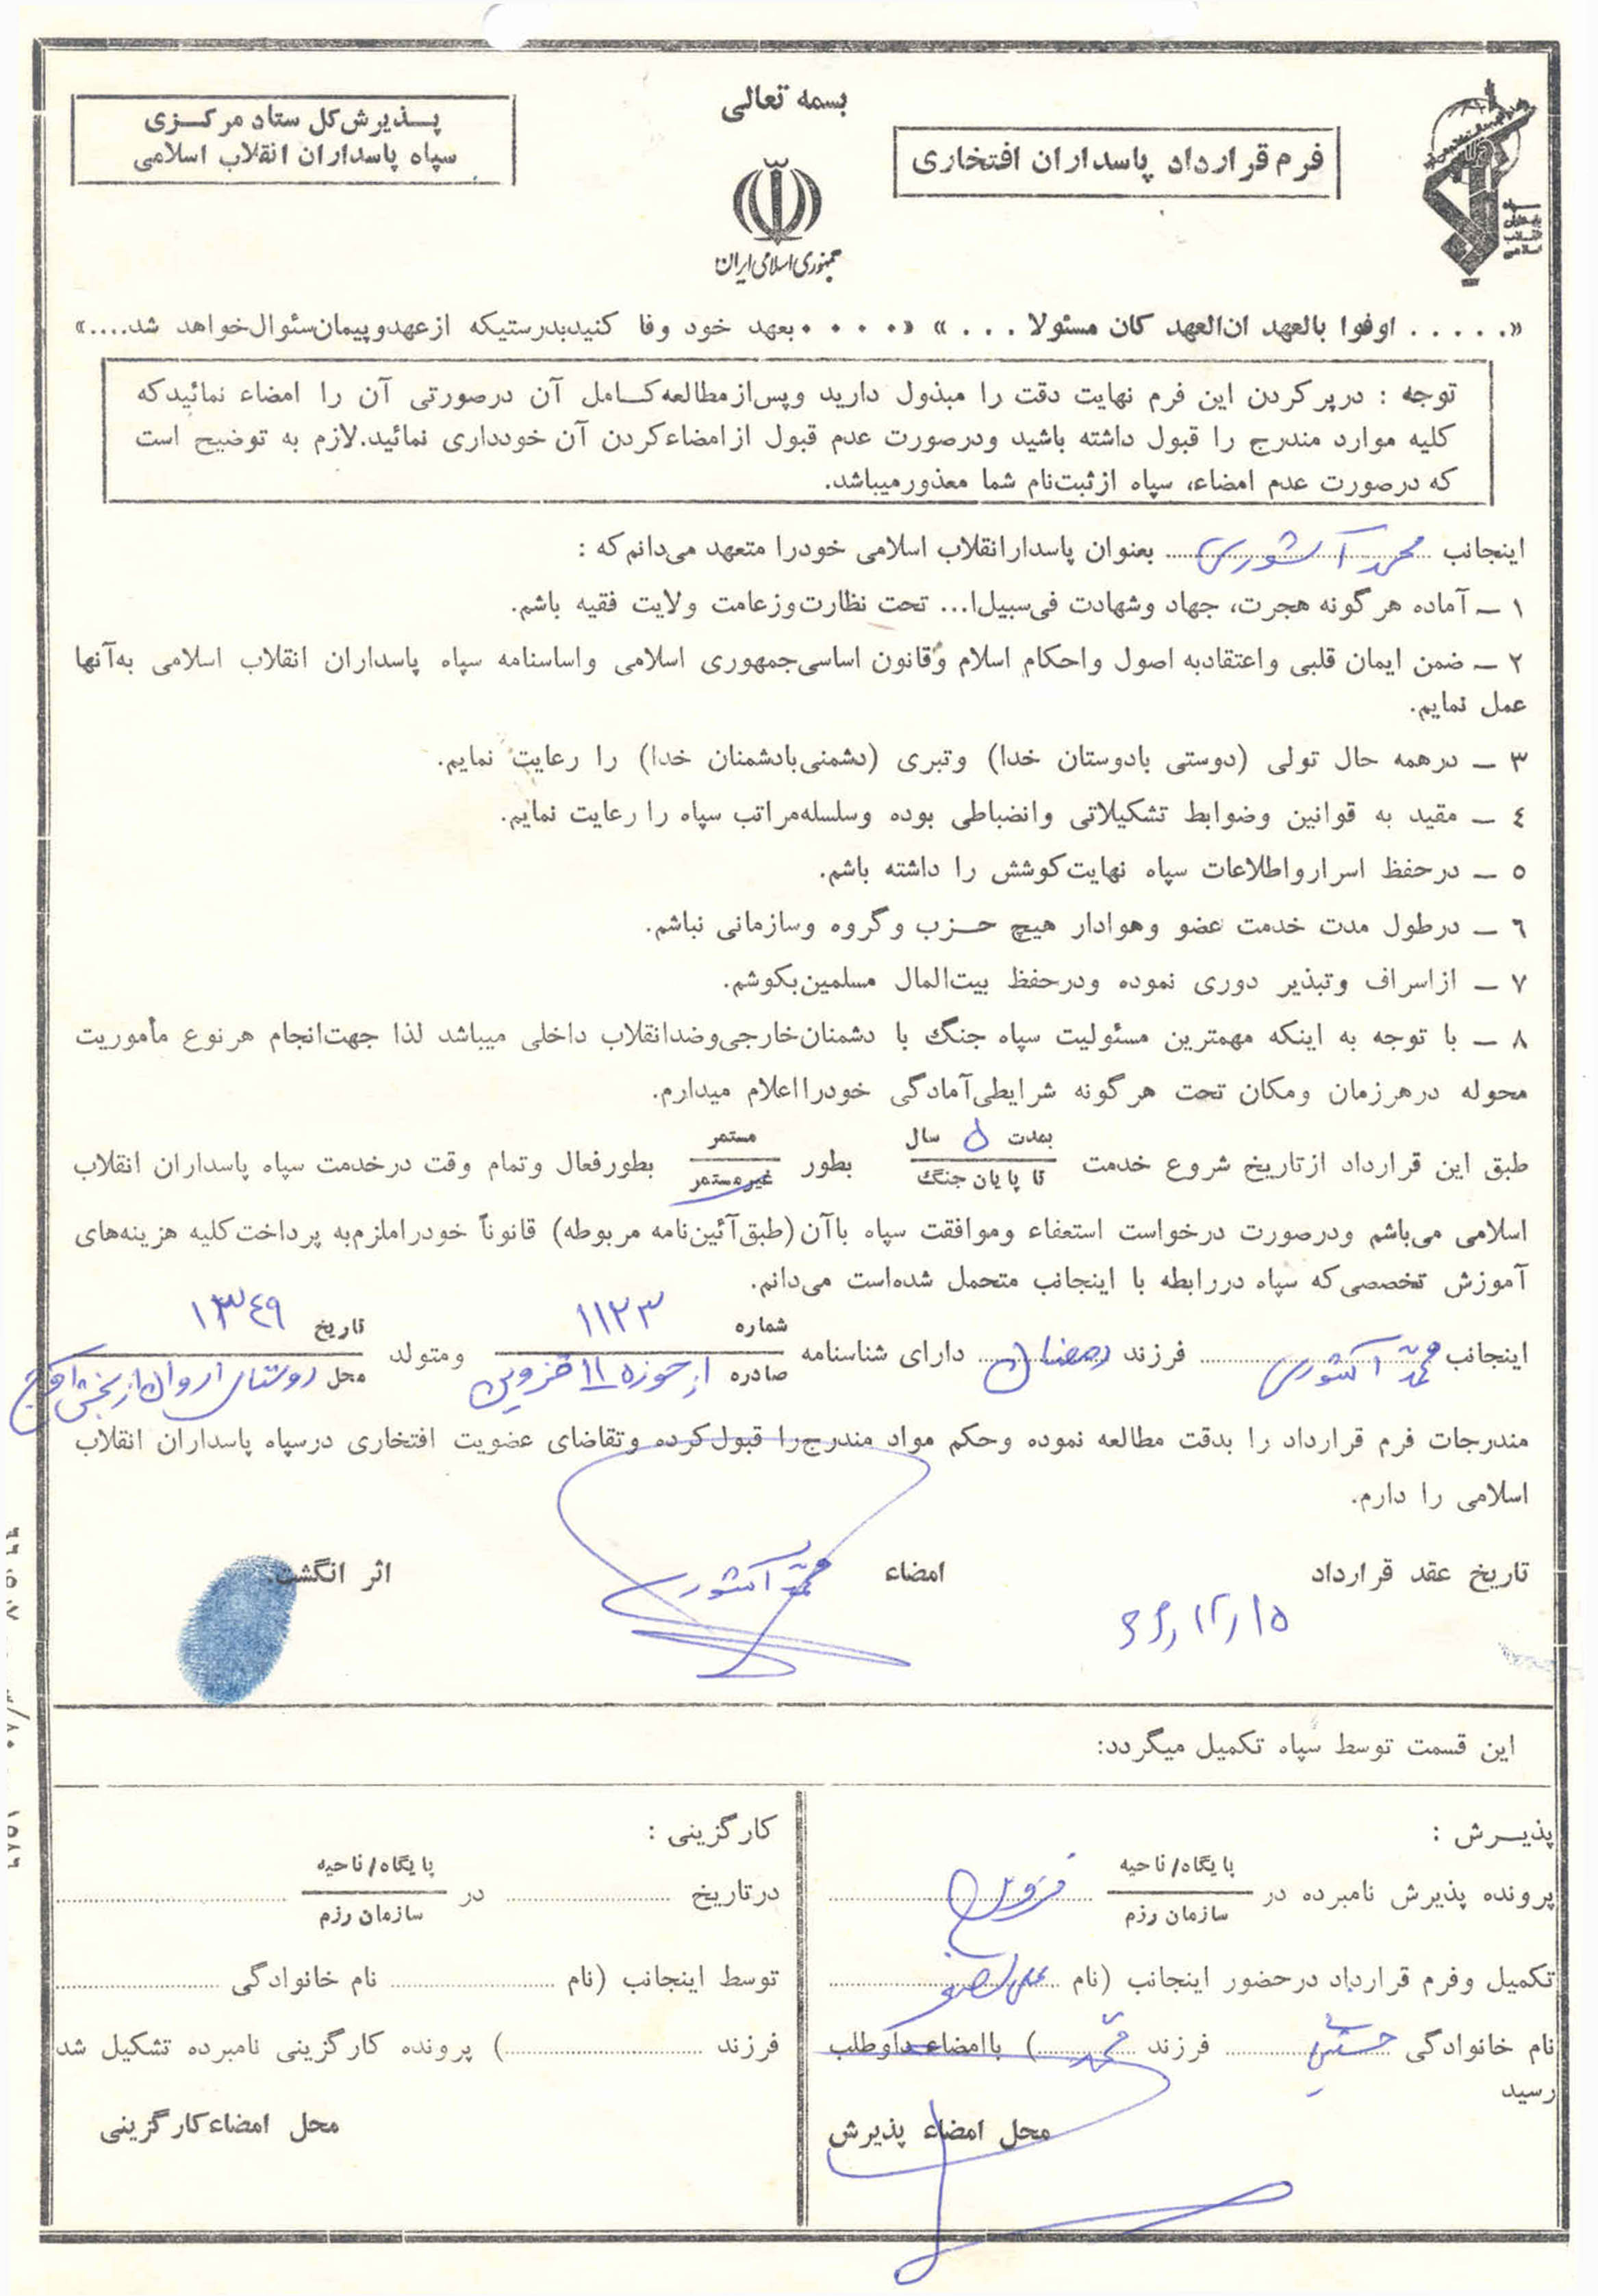 بسمه تعالی
پذیرش کل ستاد مرکزی
سپاه پاسداران انقلاب اسلامی
فرم قرارداد پاسداران افتخاری
سپاه
پاسداران
انقلاب
اسلامی
جمهوری اسلامی ایران
«..... اوفوا بالعهد ان‌العهد کان مسئولا ...» «.... بعهد خود وفا کنیدبدرستیکه ازعهدوپیمان‌سئوال‌خواهد شد....»
توجه : درپرکردن این فرم نهایت دقت را مبذول دارید وپس‌ازمطالعه‌کامل آن درصورتی آن را امضاء نمائیدکه
کلیه موارد مندرج را قبول داشته باشید ودرصورت عدم قبول ازامضاءکردن آن خودداری نمائید.لازم به توضیح است
که درصورت عدم امضاء، سپاه ازثبت‌نام شما معذورمیباشد.
اینجانب محمد آشوری بعنوان پاسدارانقلاب اسلامی خودرا متعهد می‌دانم که :
۱ ـ آماده هرگونه هجرت، جهاد وشهادت فی‌سبیل‌ا... تحت نظارت‌وزعامت ولایت فقیه باشم.
۲ ـ ضمن ایمان قلبی واعتقادبه اصول واحکام اسلام وقانون اساسی‌جمهوری اسلامی واساسنامه سپاه پاسداران انقلاب اسلامی به‌آنها
عمل نمایم.
۳ ـ درهمه حال تولی (دوستی بادوستان خدا) وتبری (دشمنی‌بادشمنان خدا) را رعایت نمایم.
٤ ـ مقید به قوانین وضوابط تشکیلاتی وانضباطی بوده وسلسله‌مراتب سپاه را رعایت نمایم.
٥ ـ درحفظ اسرارواطلاعات سپاه نهایت‌کوشش را داشته باشم.
٦ ـ درطول مدت خدمت عضو وهوادار هیچ حزب وگروه وسازمانی نباشم.
۷ ـ ازاسراف وتبذیر دوری نموده ودرحفظ بیت‌المال مسلمین‌بکوشم.
۸ ـ با توجه به اینکه مهمترین مسئولیت سپاه جنگ با دشمنان‌خارجی‌وضدانقلاب داخلی میباشد لذا جهت‌انجام هرنوع مأموریت
محوله درهرزمان ومکان تحت هرگونه شرایطی‌آمادگی خودرااعلام میدارم.
بمدت ۵ سال مستمر
طبق این قرارداد ازتاریخ شروع خدمت تا پایان جنگ بطور غیرمستمر بطورفعال وتمام وقت درخدمت سپاه پاسداران انقلاب
اسلامی می‌باشم ودرصورت درخواست استعفاء وموافقت سپاه باآن (طبق‌آئین‌نامه مربوطه) قانوناً خودراملزم‌به پرداخت‌کلیه هزینه‌های
آموزش تخصصی‌که سپاه دررابطه با اینجانب متحمل شده‌است می‌دانم.
شماره ۱۱۲۳ تاریخ ۱۳۴۹
اینجانب محمد آشوری فرزند رمضان دارای شناسنامه صادره از حوزه ۱۱ قزوین ومتولد محل روستای اروان از بخش آوج
مندرجات فرم قرارداد را بدقت مطالعه نموده وحکم مواد مندرج‌را قبول‌کرده وتقاضای عضویت افتخاری درسپاه پاسداران انقلاب
اسلامی را دارم.
تاریخ عقد قرارداد امضاء محمد آشوری اثر انگشت.
۶۶/۱۲/۱۵
این قسمت توسط سپاه تکمیل میگردد:
پذیرش :
پایگاه/ناحیه
پرونده پذیرش نامبرده در سازمان رزم قزوین
تکمیل وفرم قرارداد درحضور اینجانب (نام
نام خانوادگی حسنی فرزند محمد) باامضاءداوطلب
رسید
محل امضاء پذیرش
کارگزینی :
پایگاه/ناحیه
درتاریخ در سازمان رزم
توسط اینجانب (نام نام خانوادگی
فرزند ) پرونده کارگزینی نامبرده تشکیل شد
محل امضاءکارگزینی